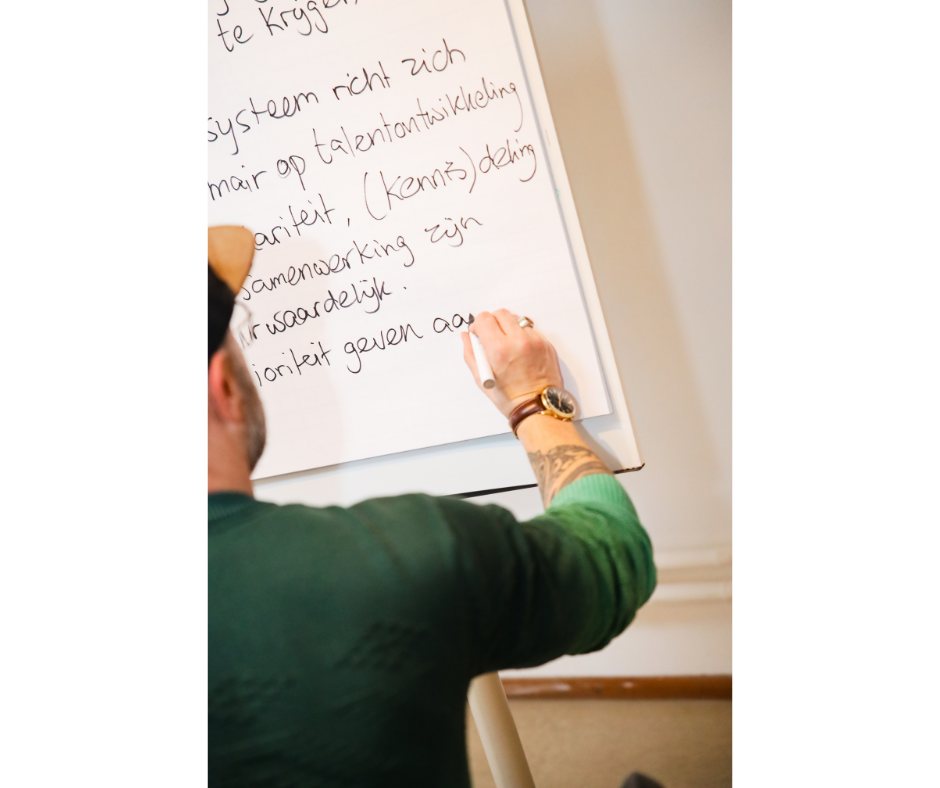 te krijgen,
systeem richt zich
mair op talentontwikkeling
ariteit, (kennis)deling
samenwerking zijn
rwaardelijk.
ioriteit geven aa